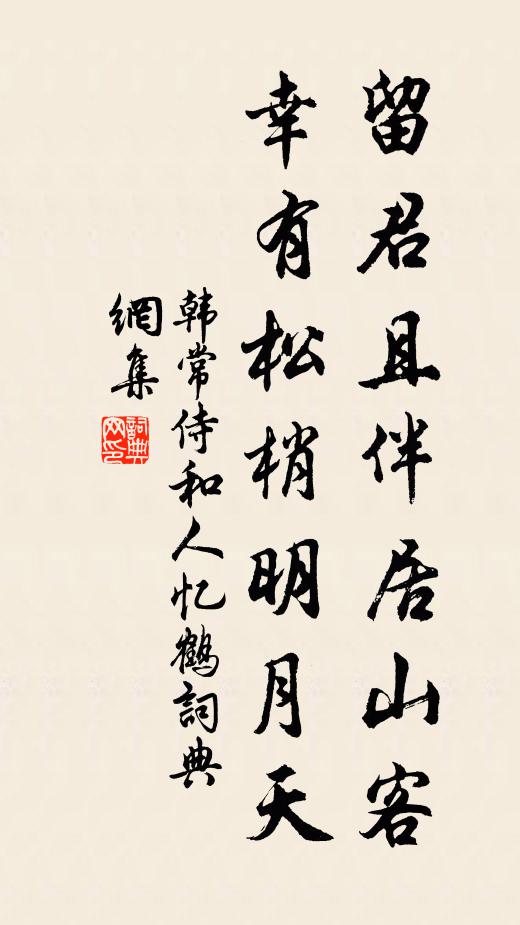 留君且伴居山客
幸有松梢明月天
韩常侍和人忆鹤詞典
網集
詞典
网印